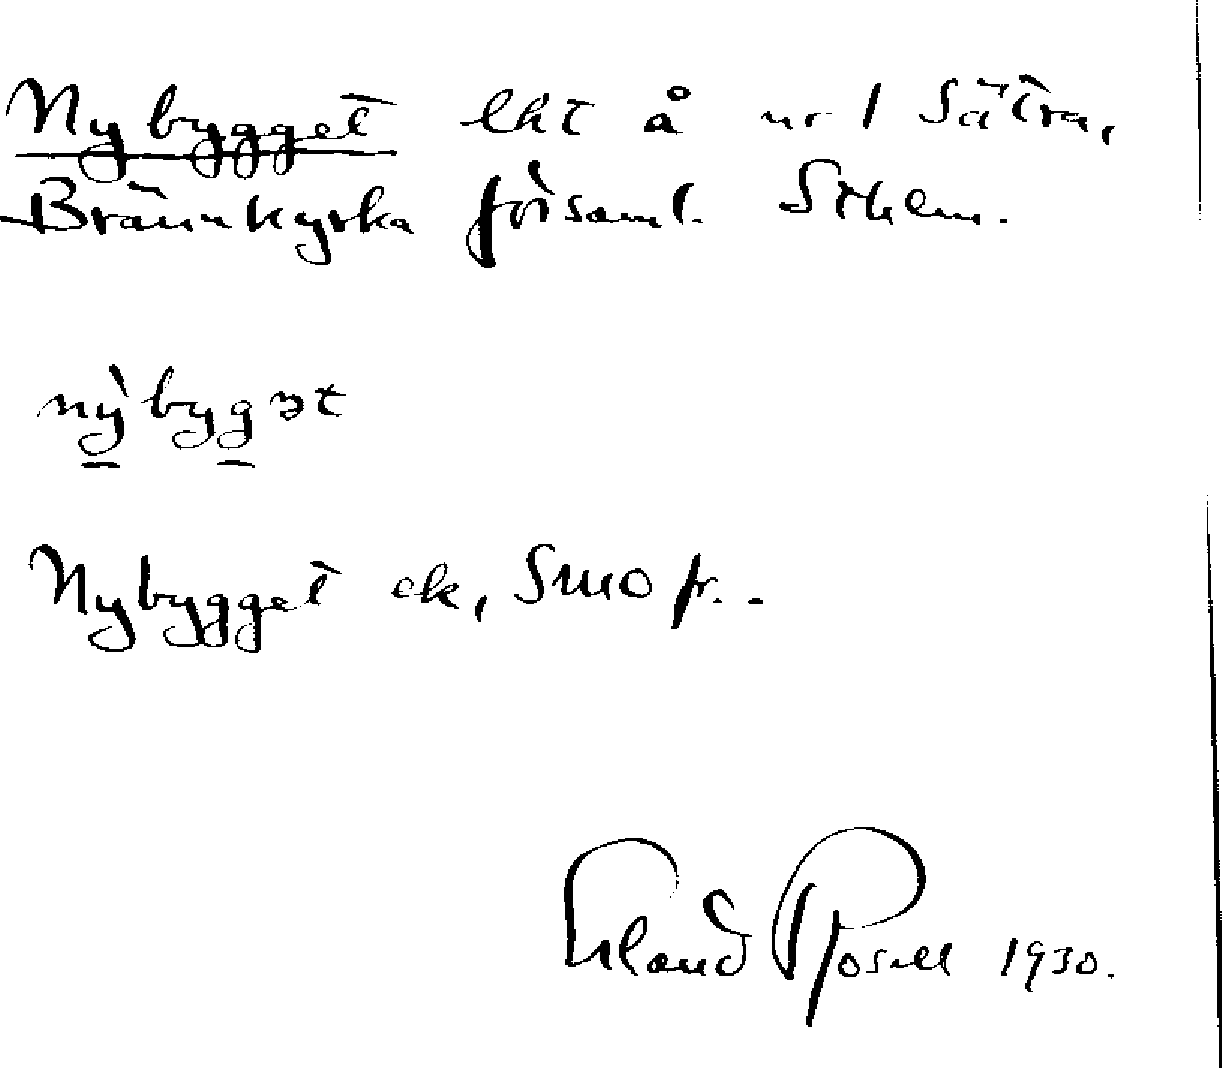 Nybygget lht å nr 1 Sätra,
Brännkyrka förs​aml. Sthlm.
nỳbygət
Nybygget ek, Smo fr..
Erland Rosell 1930.